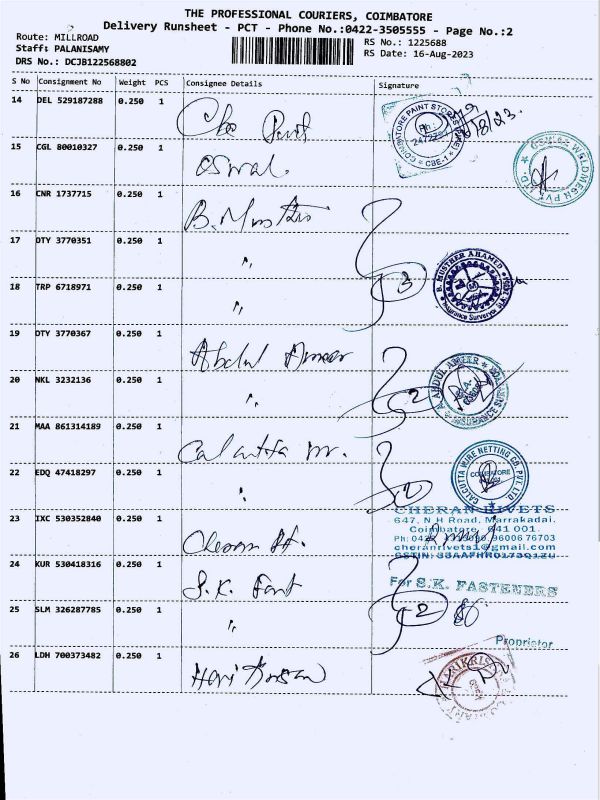 THE PROFESSIONAL COURIERS, COIMBATORE
Delivery Runsheet - PCT - Phone No.:0422-3505555 - Page No.:2
Route: MILLROAD
Staff: PALANISAMY
DRS No.: DCJB122568802
RS No.: 1225688
RS Date: 16-Aug-2023
S No Consignment No Weight PCS Consignee Details Signature
14 DEL 529187288 0.250 1
COIMBATORE PAINT STORES CBE-1
15 CGL 80010327 0.250 1 Oswal
OSWAL WELDMESH PVT. LTD.
16 CNR 1737715 0.250 1 B. Musther
17 DTY 3770351 0.250 1 "
B. MUSTHER AHAMED
Insurance Surveyor
18 TRP 6718971 0.250 1 "
3
19 DTY 3770367 0.250 1 Abdul Ameer
20 NKL 3232136 0.250 1 "
2
A. ABDUL AMEER
21 MAA 861314189 0.250 1 Calcutta W.
CALCUTTA WIRE NETTING CO. PVT. LTD.
COIMBATORE
22 EDQ 47418297 0.250 1 "
2
CHERAN RIVETS
647, N H Road, Marrakadai,
Coimbatore, 641 001.
23 IXC 530352840 0.250 1 Cheran
cheranrivets1@gmail.com
24 KUR 530418316 0.250 1 S.K. Fast
For S.K. FASTENERS
25 SLM 326287785 0.250 1 "
2
Proprietor
26 LDH 700373482 0.250 1 Hari